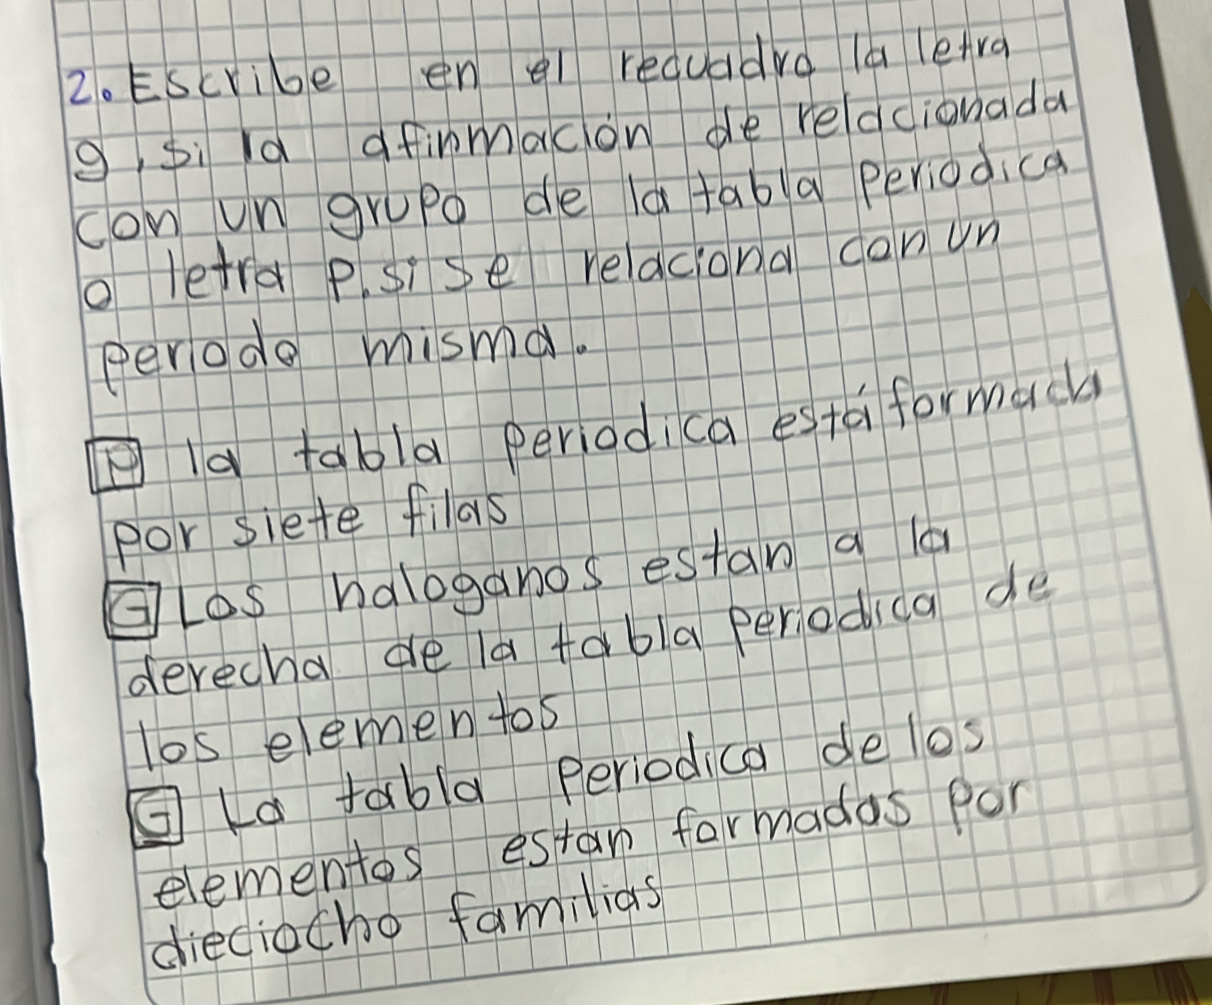 2. Escribe en el recuadro la letra
g, si la afinmación de relacionada
con un grupo de la tabla periodica
o letra p. si se relaciona con un
periodo misma.
P la tabla periodica está formada
por siete filas
G Los haloganos estan a la
derecha de la tabla periodica de
los elementos
G La tabla periodica de los
elementos estan formadas por
dieciocho familias